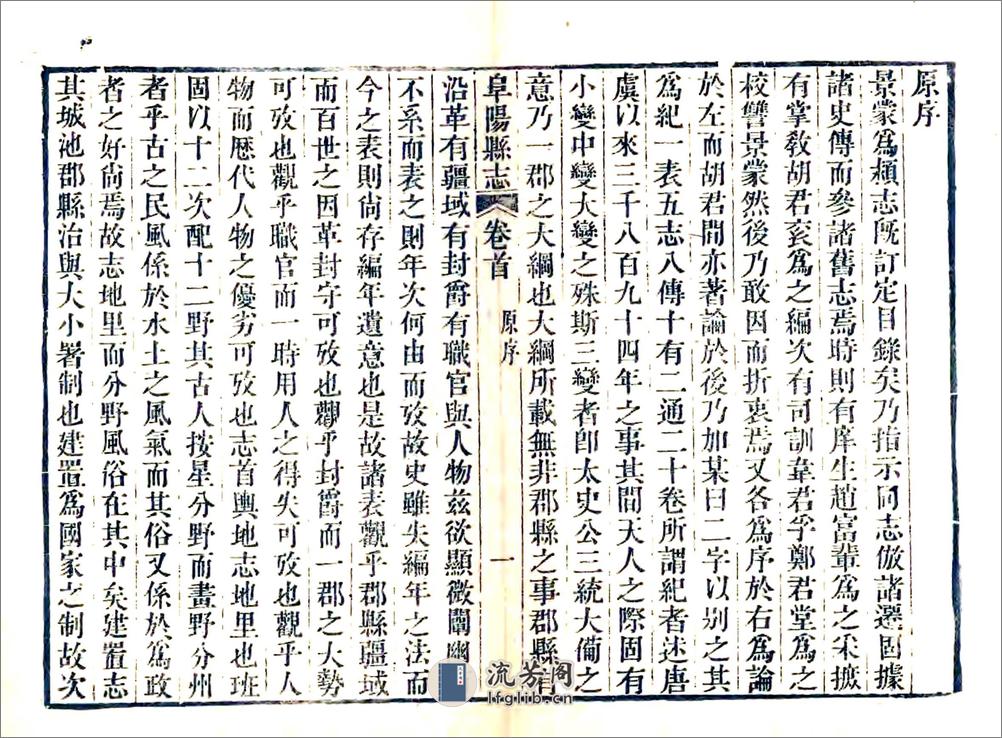 原序
景蒙爲潁志旣訂定目錄矣乃指示同志倣諸遷固據
諸史傳而參諸舊志焉時則有庠生趙富輩爲之采摭
有掌敎胡君袞爲之編次有司訓韋君孚鄭君堂爲之
校讐景蒙然後乃敢因而折衷焉又各爲序於右爲論
於左而胡君間亦著論於後乃加某曰二字以别之其
爲紀一表五志八傳十有二通二十卷所謂紀者述唐
虞以來三千八百九十四年之事其間天人之際固有
小變中變大變之殊斯三變者卽太史公三統大備之
意乃一郡之大綱也大綱所載無非郡縣之事郡縣有
阜陽縣志 卷首 原序 一
沿革有疆域有封爵有職官與人物兹欲顯微闡幽
不系而表之則年次何由而攷故史雖失編年之法而
今之表則尙存編年遺意也是故諸表觀乎郡縣疆域
而百世之因革封守可攷也觀乎封爵而一郡之大勢
可攷也觀乎職官而一時用人之得失可攷也觀乎人
物而歷代人物之優劣可攷也志首輿地志地里也班
固以十二次配十二野其古人按星分野而畫野分州
者乎古之民風係於水土之風氣而其俗又係於爲政
者之好尙焉故志地里而分野風俗在其中矣建置志
其城池郡縣治與大小署制也建置爲國家之制故次
流芳阁
lfglib.cn